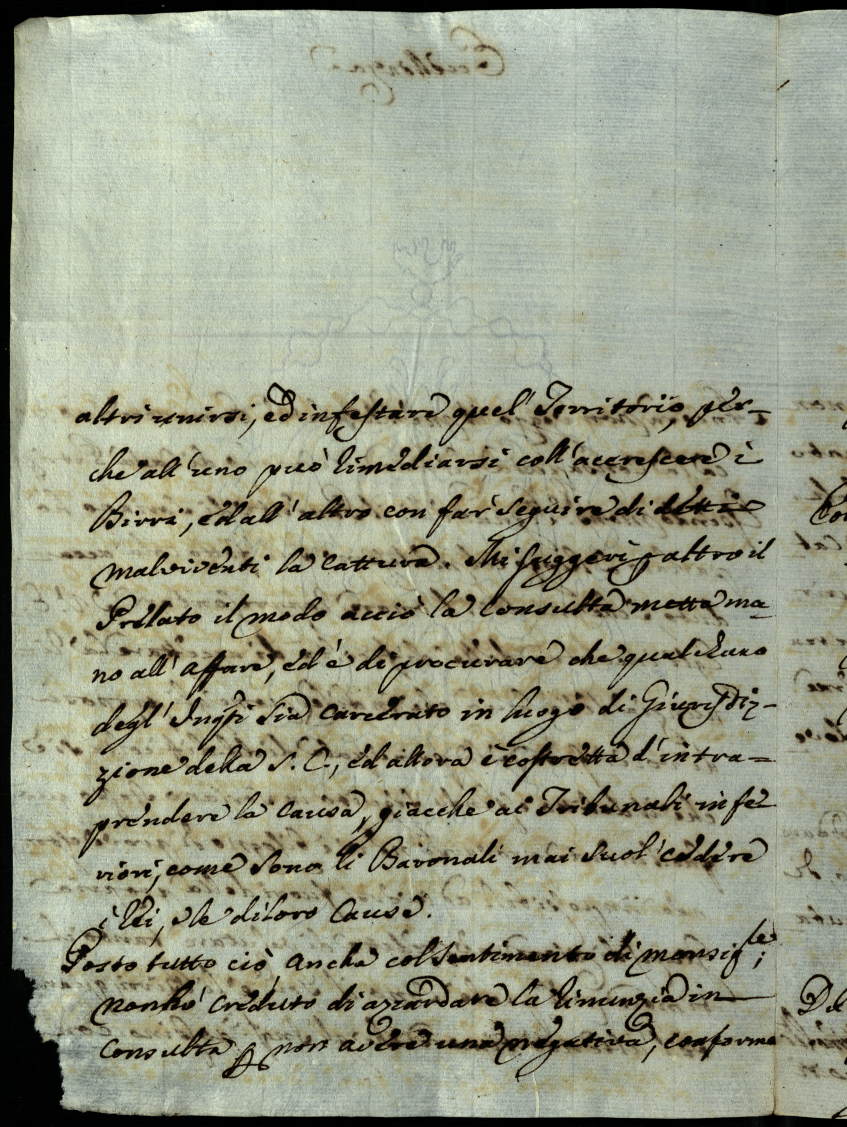 altri unirsi, ed infestare quel Territorio, per-
che all'uno può rimediarsi coll'accrescere i
Birri, ed all'altro con far seguire di detti
malviventi la cattura. Mi suggerì altro il
Prelato il modo acciò la Consulta metta ma-
no all'affare, ed è di procurare che qualcuno
degl'Inqti sia carcerato in luogo di Giurisdiz-
zione della S. C., ed allora è costretta d'intra-
prendere la causa, giacche ai Tribunali infe-
riori, come sono li Baronali mai suol cedere
i Rei, e le di loro Cause.
Posto tutto ciò, anche col sentimento di monsig.re;
non hò creduto di azzardare la rinunzia in
Consulta p non avere una negativa, conforme